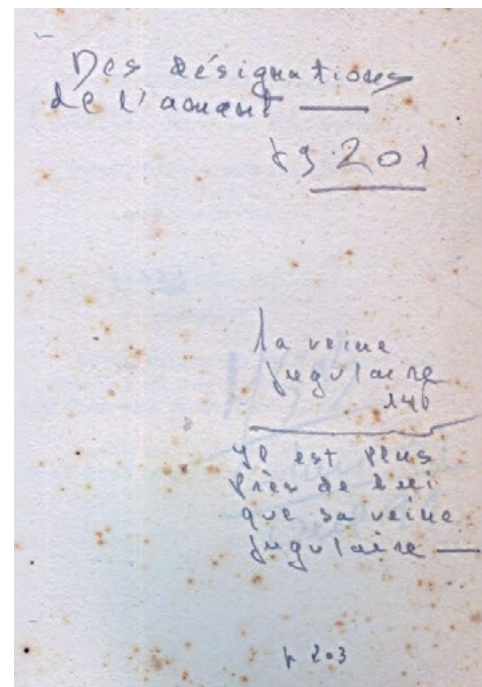 Des désignations
de l'amant —
pg 201
la veine
jugulaire
146
Il est plus
près de lui
que sa veine
jugulaire —
p 203